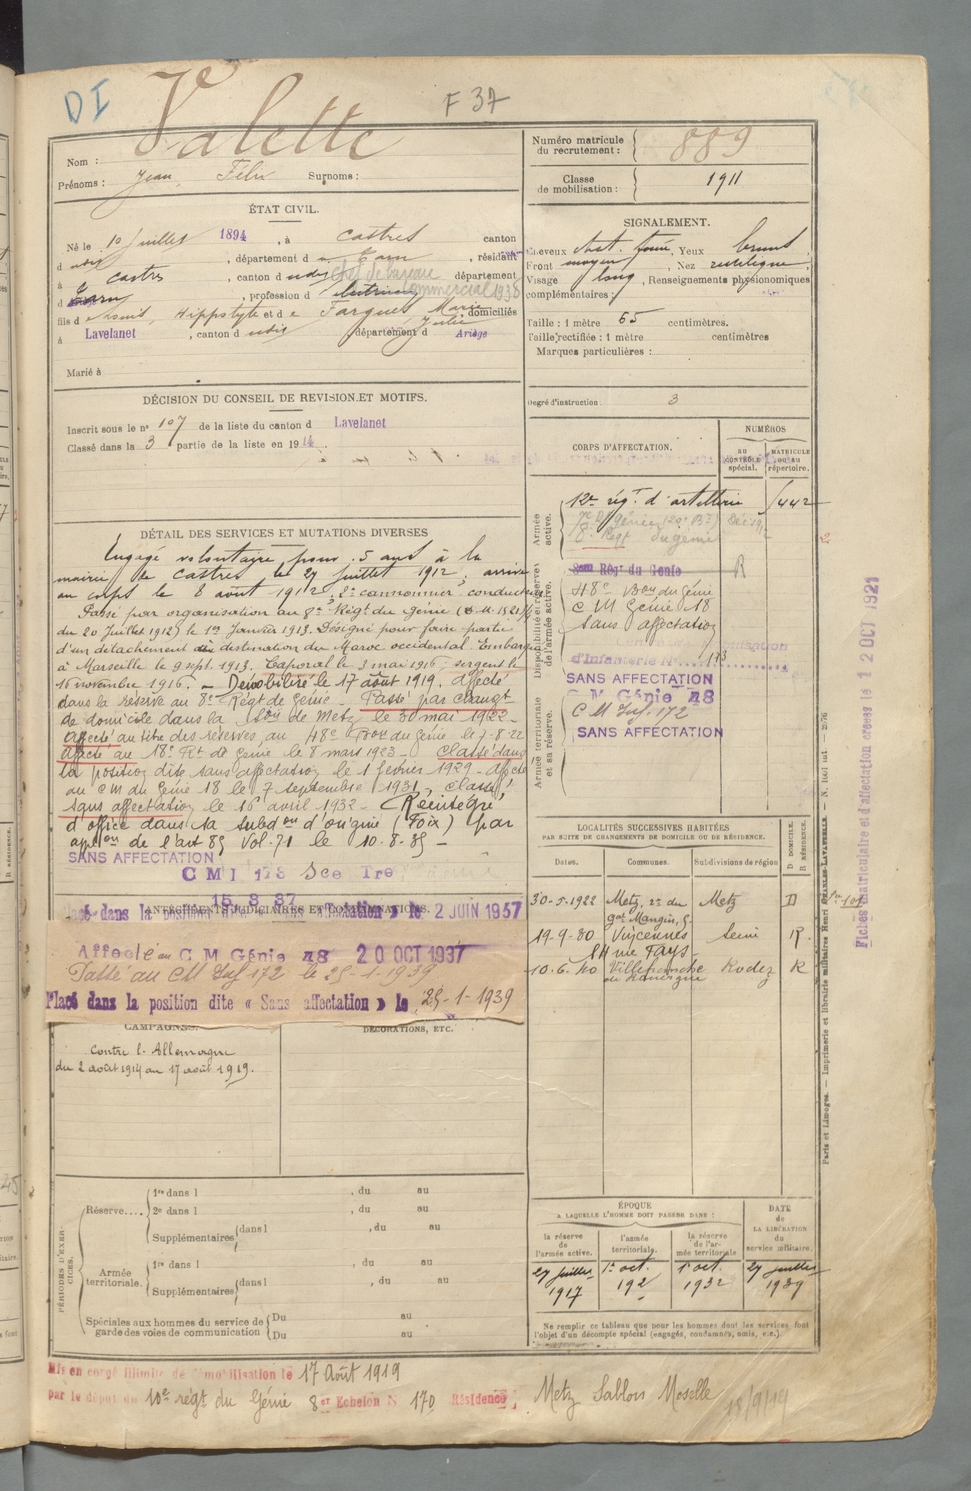 DI
F 37
Valette
Nom :
Prénoms : Jean, Félix Surnoms :
Numéro matricule du recrutement : 889
Classe de mobilisation : 1911
ÉTAT CIVIL.
Né le 10 juillet 1894, à Castres canton
d udit, département d u Tarn, résidant
à Castres, canton d udit département
Chef de bureau
d Tarn, profession d
commercial 1938
fils d Hippolyte et d e Fargues, Marie domiciliés
Julie
à Lavelanet, canton d udit département d Ariège
Marié à
SIGNALEMENT.
Cheveux chat. foncé, Yeux bruns
Front moyen, Nez rectiligne,
Visage long, Renseignements physionomiques
complémentaires :
Taille : 1 mètre 65 centimètres.
Taille rectifiée : 1 mètre centimètres
Marques particulières :
Degré d'instruction : 3
DÉCISION DU CONSEIL DE REVISION ET MOTIFS.
Inscrit sous le nº 107 de la liste du canton d Lavelanet
Classé dans la 3 partie de la liste en 1914
CORPS D'AFFECTATION.
NUMÉROS
AU CONTRÔLE spécial.
MATRICULE OU AU répertoire.
Armée active.
12e régt. d'artillerie 1442
8e Régt du génie
Disponibilité et réserve de l'armée active.
8ème Régt du Génie R
48e Bon du Génie
C M Génie 18
Sans affectation
d'Infanterie No 173
SANS AFFECTATION
Armée territoriale et sa réserve.
C M Génie 48
C M Inf. 172
SANS AFFECTATION
DÉTAIL DES SERVICES ET MUTATIONS DIVERSES
Engagé volontaire pour 5 ans à la
mairie de Castres le 27 juillet 1912, arrivé
au corps le 2 août 1912, 2e cannonier conducteur
Passé par organisation au 8e Régt du Génie (D.M. 1521/
du 20 Juillet 1912) le 1er Janvier 1913. Désigné pour faire partie
d'un détachement à destination du Maroc occidental. Embarqué
à Marseille le 9 sept. 1913. Caporal le 3 mai 1916, sergent le
16 novembre 1916. — Démobilisé le 17 août 1919. Affecté
dans la réserve au 8e Régt de Génie — Passé par changt
de domicile dans la Son de Metz le 30 mai 1922 —
Affecté au titre des réserves au 48e Bon du Génie le 7-8-22
Affecté au 18e Rt du Génie le 8 mars 1923 — Classé dans
la position dite sans affectation le 1 février 1929 — Affecté
au C M du Génie 18 le 7 septembre 1931, classé
sans affectation le 16 avril 1932 — Réintégré
d'office dans sa subdon d'origine (Foix) par
applon de l'art 85 Vol. 71 le 10-8-35 —
SANS AFFECTATION
C M I 173 Sce Tre
15.3.37
ANTÉCÉDENTS JUDICIAIRES ET CONDAMNATIONS.
Placé dans la position dite « Sans affectation » le 2 JUIN 1937
Affecté au C M Génie 48 20 OCT 1937
Passé au CM Inf 172 le 25-1-1939
Placé dans la position dite « Sans affectation » le 25-1-1939
LOCALITÉS SUCCESSIVES HABITÉES
PAR SUITE DE CHANGEMENTS DE DOMICILE OU DE RÉSIDENCE.
Dates. Communes. Subdivisions de région D DOMICILE. R RÉSIDENCE.
30-5-1922 Metz, rue du Metz D
gal Mangin, 5
19-9-30 Vincennes Seine R.
rue Fays
10.6.40 Villefranche Rodez R
de Rouergue
CAMPAGNES.
Contre l'Allemagne
du 2 août 1914 au 17 août 1919.
DÉCORATIONS, ETC.
PÉRIODES D'EXERCICES.
Réserve....
1re dans l , du au
2e dans l , du au
Supplémentaires dans l , du au
Armée territoriale.
1re dans l , du au
Supplémentaires dans l , du au
Spéciales aux hommes du service de garde des voies de communication
Du au
Du au
ÉPOQUE
A LAQUELLE L'HOMME DOIT PASSER DANS :
la réserve de l'armée active. l'armée territoriale. la réserve de l'armée territoriale
DATE de LA LIBÉRATION du service militaire.
27 juillet 1917 1er oct. 192 1er oct. 1932 27 juillet 1939
Ne remplir ce tableau que pour les hommes dont les services font
l'objet d'un décompte spécial (engagés, condamnés, omis, etc.).
Mis en congé illimité de démobilisation le 17 Août 1919
par le dépôt du 10e régt du Génie 8me Echelon N 170 Résidence : Metz Sablons Moselle
15/9/19
Fiches matriculaire et d'affectation créées le 12 OCT 1921
Paris et Limoges. — Imprimerie et librairie militaires Henri CHARLES-LAVAUZELLE